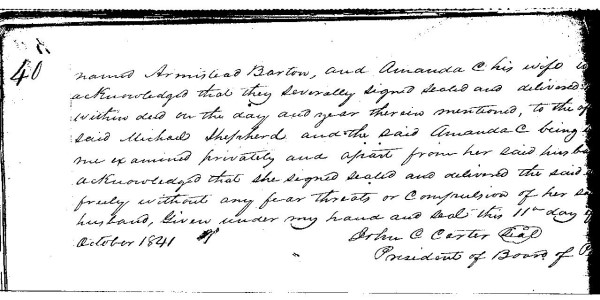 40
named Armistead Barton, and Amanda C his wife
acknowledged that they severally signed sealed and delivered
within deed on the day and year therein mentioned, to the
said Michael Shepherd and the said Amanda C being
me examined privately and apart from her said
acknowledged that she signed sealed and delivered the said
freely without any fear threats or Compulsion of her
husband, Given under my hand and seal this 11th day
October 1841
John C Carter Seal
President of Board of